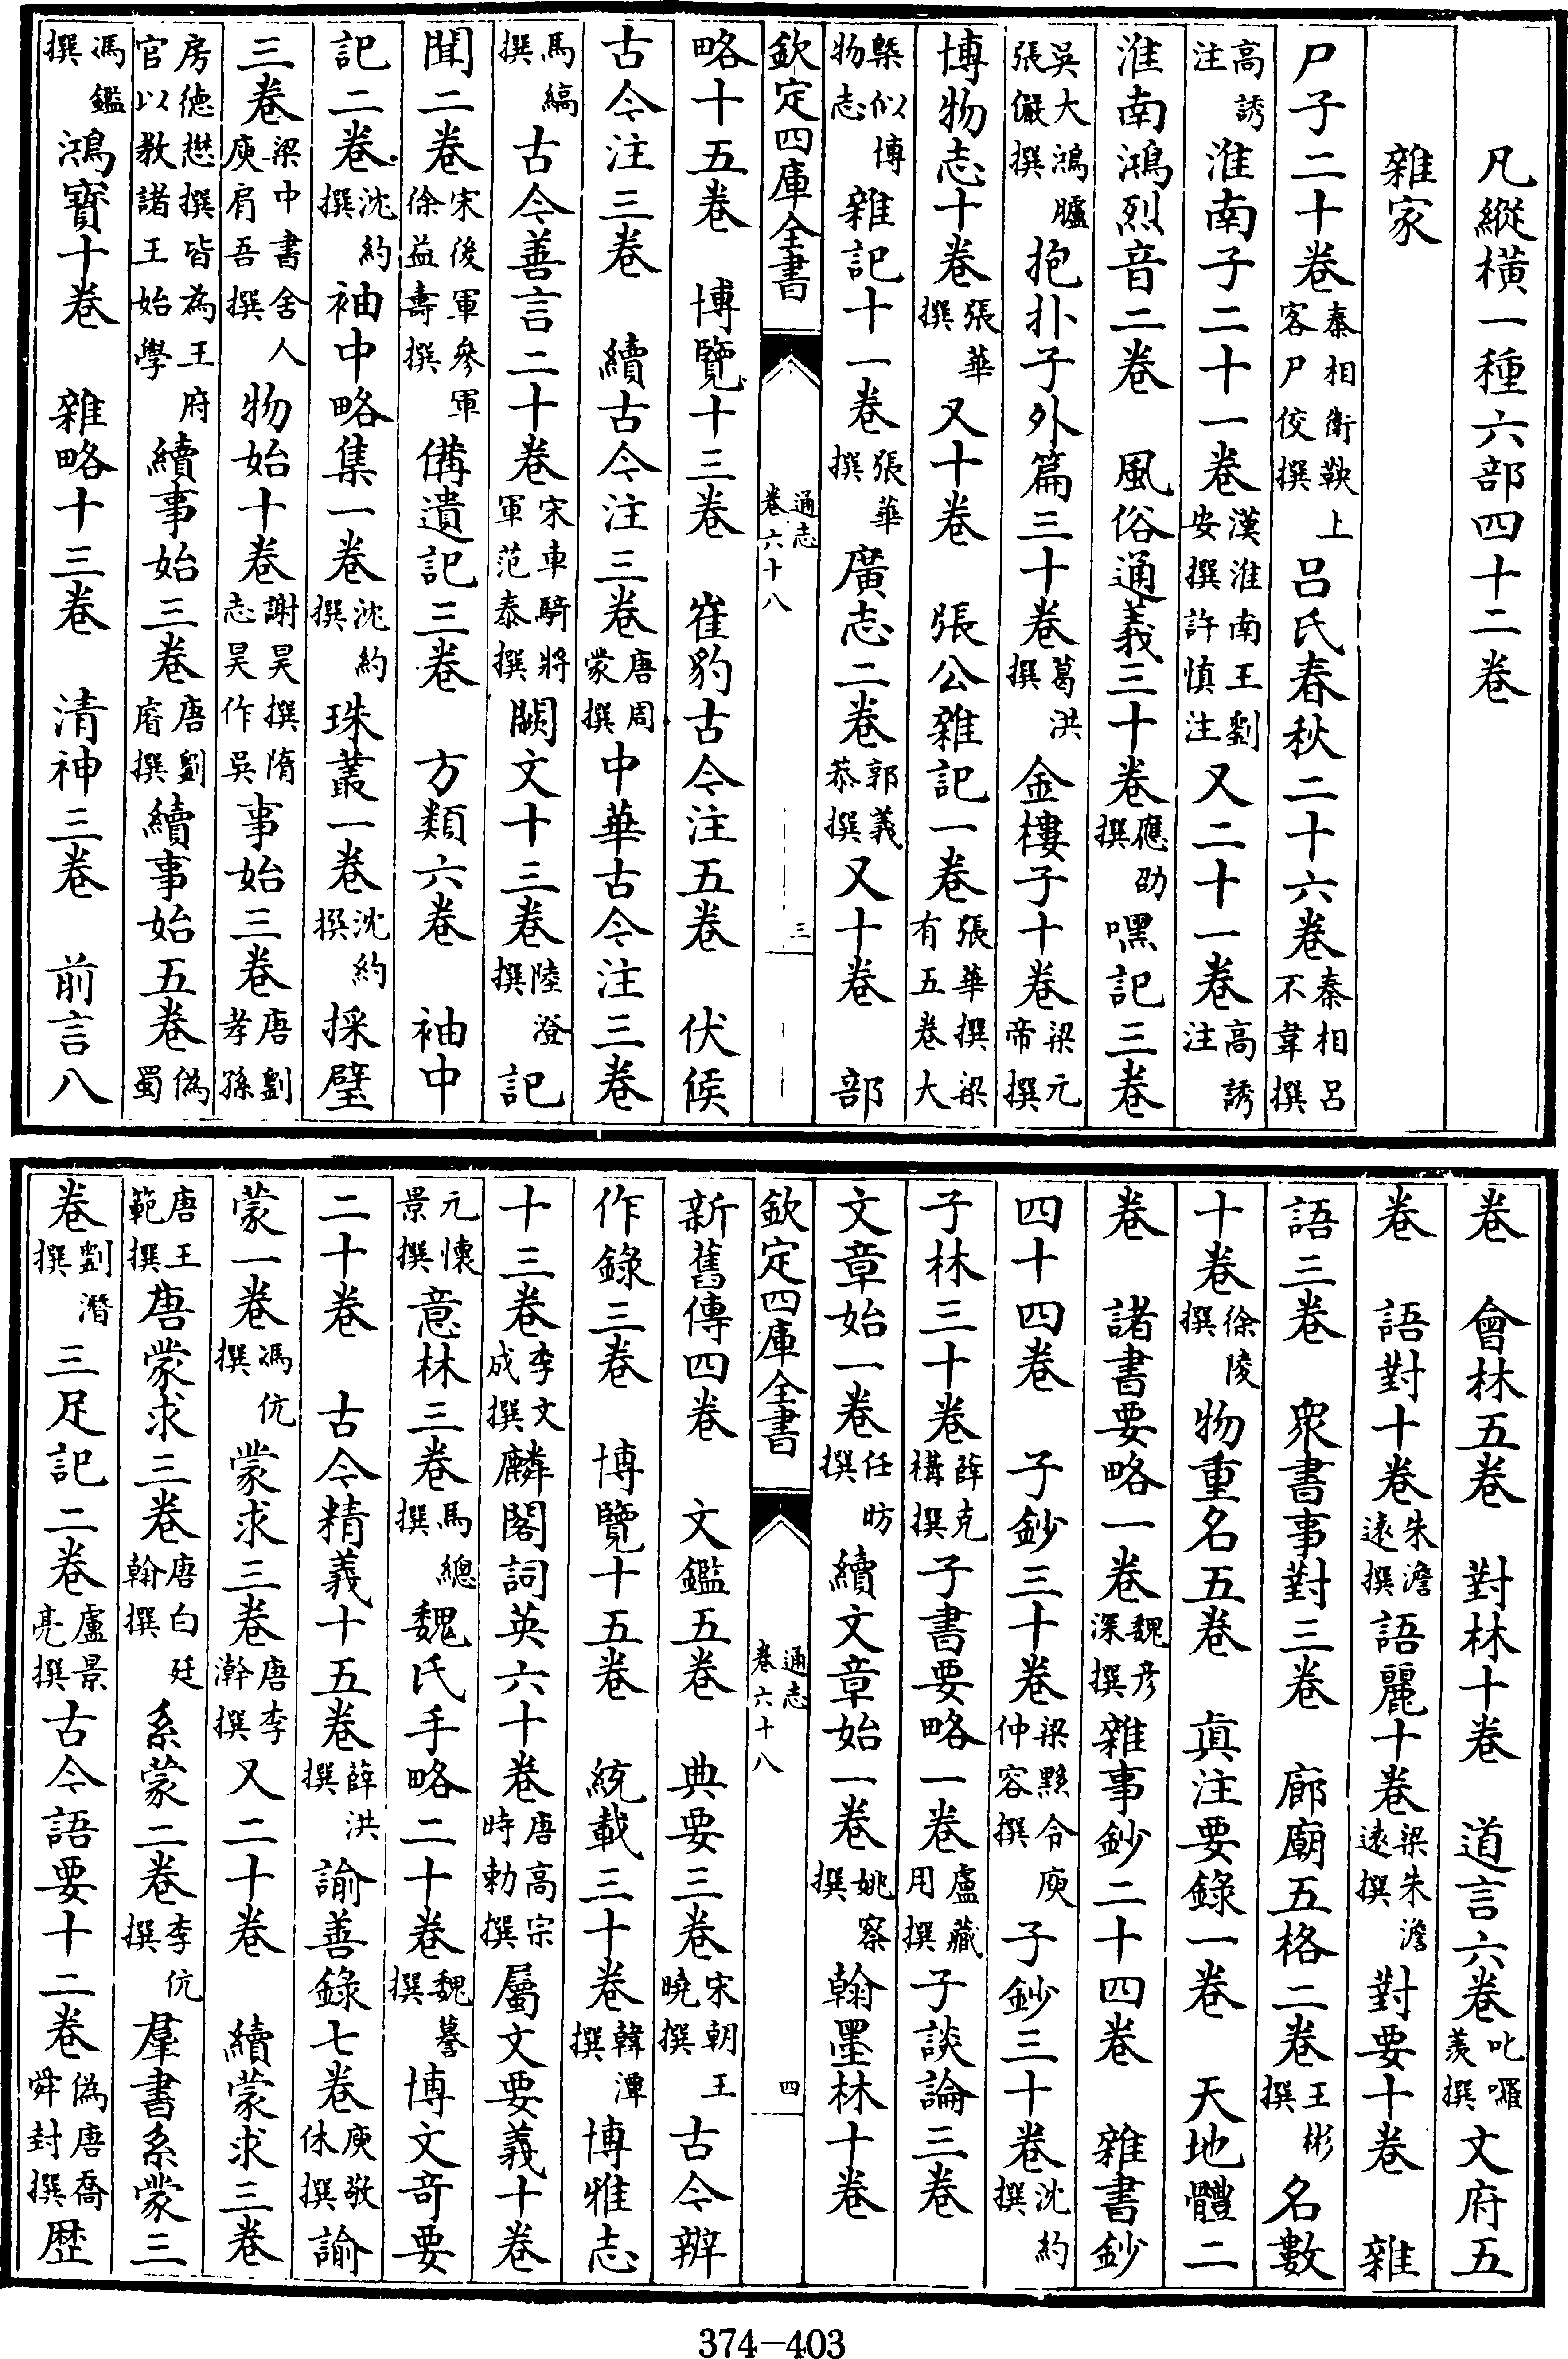 凡縱橫一種六部四十二卷
雜家
尸子二十卷秦相衛鞅上客尸佼撰 呂氏春秋二十六卷秦相呂不韋撰
淮南子二十一卷漢淮南王劉安撰許慎注 又二十一卷高誘注
淮南鴻烈音二卷高誘注 風俗通義三十卷應劭撰 嘿記三卷
吳大鴻臚張儼撰 抱扑子外篇三十卷葛洪撰 金樓子十卷梁元帝撰
博物志十卷張華撰 又十卷 張公雜記一卷張華撰梁有五卷大
槩似博物志 雜記十一卷張華撰 廣志二卷郭義恭撰 又十卷 部
欽定四庫全書 通志卷六十八 三
略十五卷 博覽十三卷 崔豹古今注五卷 伏侯
古今注三卷 續古今注三卷唐周蒙撰 中華古今注三卷
馬縞撰 古今善言二十卷宋車騎將軍范泰撰 闕文十三卷陸澄撰 記
聞二卷宋後軍參軍徐益壽撰 備遺記三卷 方類六卷 袖中
記二卷沈約撰 袖中略集一卷沈約撰 珠叢一卷沈約撰 採璧
三卷梁中書舍人庾肩吾撰 物始十卷謝昊撰隋志昊作吳 事始三卷唐劉孝孫
房德懋撰皆為王府官以教諸王始學 續事始三卷唐劉睿撰 續事始五卷偽蜀
馮鑑撰 鴻寶十卷 雜略十三卷 清神三卷 前言八
卷 會林五卷 對林十卷 道言六卷叱囉羨撰 文府五
卷 語對十卷朱澹遠撰 語麗十卷梁朱澹遠撰 對要十卷 雜
語三卷 衆書事對三卷 廊廟五格二卷王彬撰 名數
十卷徐陵撰 物重名五卷 真注要錄一卷 天地體二
卷 諸書要略一卷魏彦深撰 雜事鈔二十四卷 雜書鈔
四十四卷 子鈔三十卷梁黟令庾仲容撰 子鈔三十卷沈約撰
子林三十卷薛克構撰 子書要略一卷盧藏用撰 子談論三卷
文章始一卷任昉撰 續文章始一卷姚察撰 翰墨林十卷
欽定四庫全書 通志卷六十八 四
新舊傳四卷 文鑑五卷 典要三卷宋朝王曉撰 古今辨
作錄三卷 博覽十五卷 統載三十卷韓潭撰 博雅志
十三卷李文成撰 麟閣詞英六十卷唐高宗時勅撰 屬文要義十卷
元懷景撰 意林三卷馬總撰 魏氏手略二十卷魏謩撰 博文竒要
二十卷 古今精義十五卷薛洪撰 諭善錄七卷庾敬休撰 諭
蒙一卷馮伉撰 蒙求三卷唐李瀚撰 又二十卷 續蒙求三卷
唐王範撰 唐蒙求三卷唐白廷翰撰 系蒙二卷李伉撰 羣書系蒙三
卷劉潛撰 三足記二卷盧景亮撰 古今語要十二卷偽唐喬舜封撰 歴
374—403